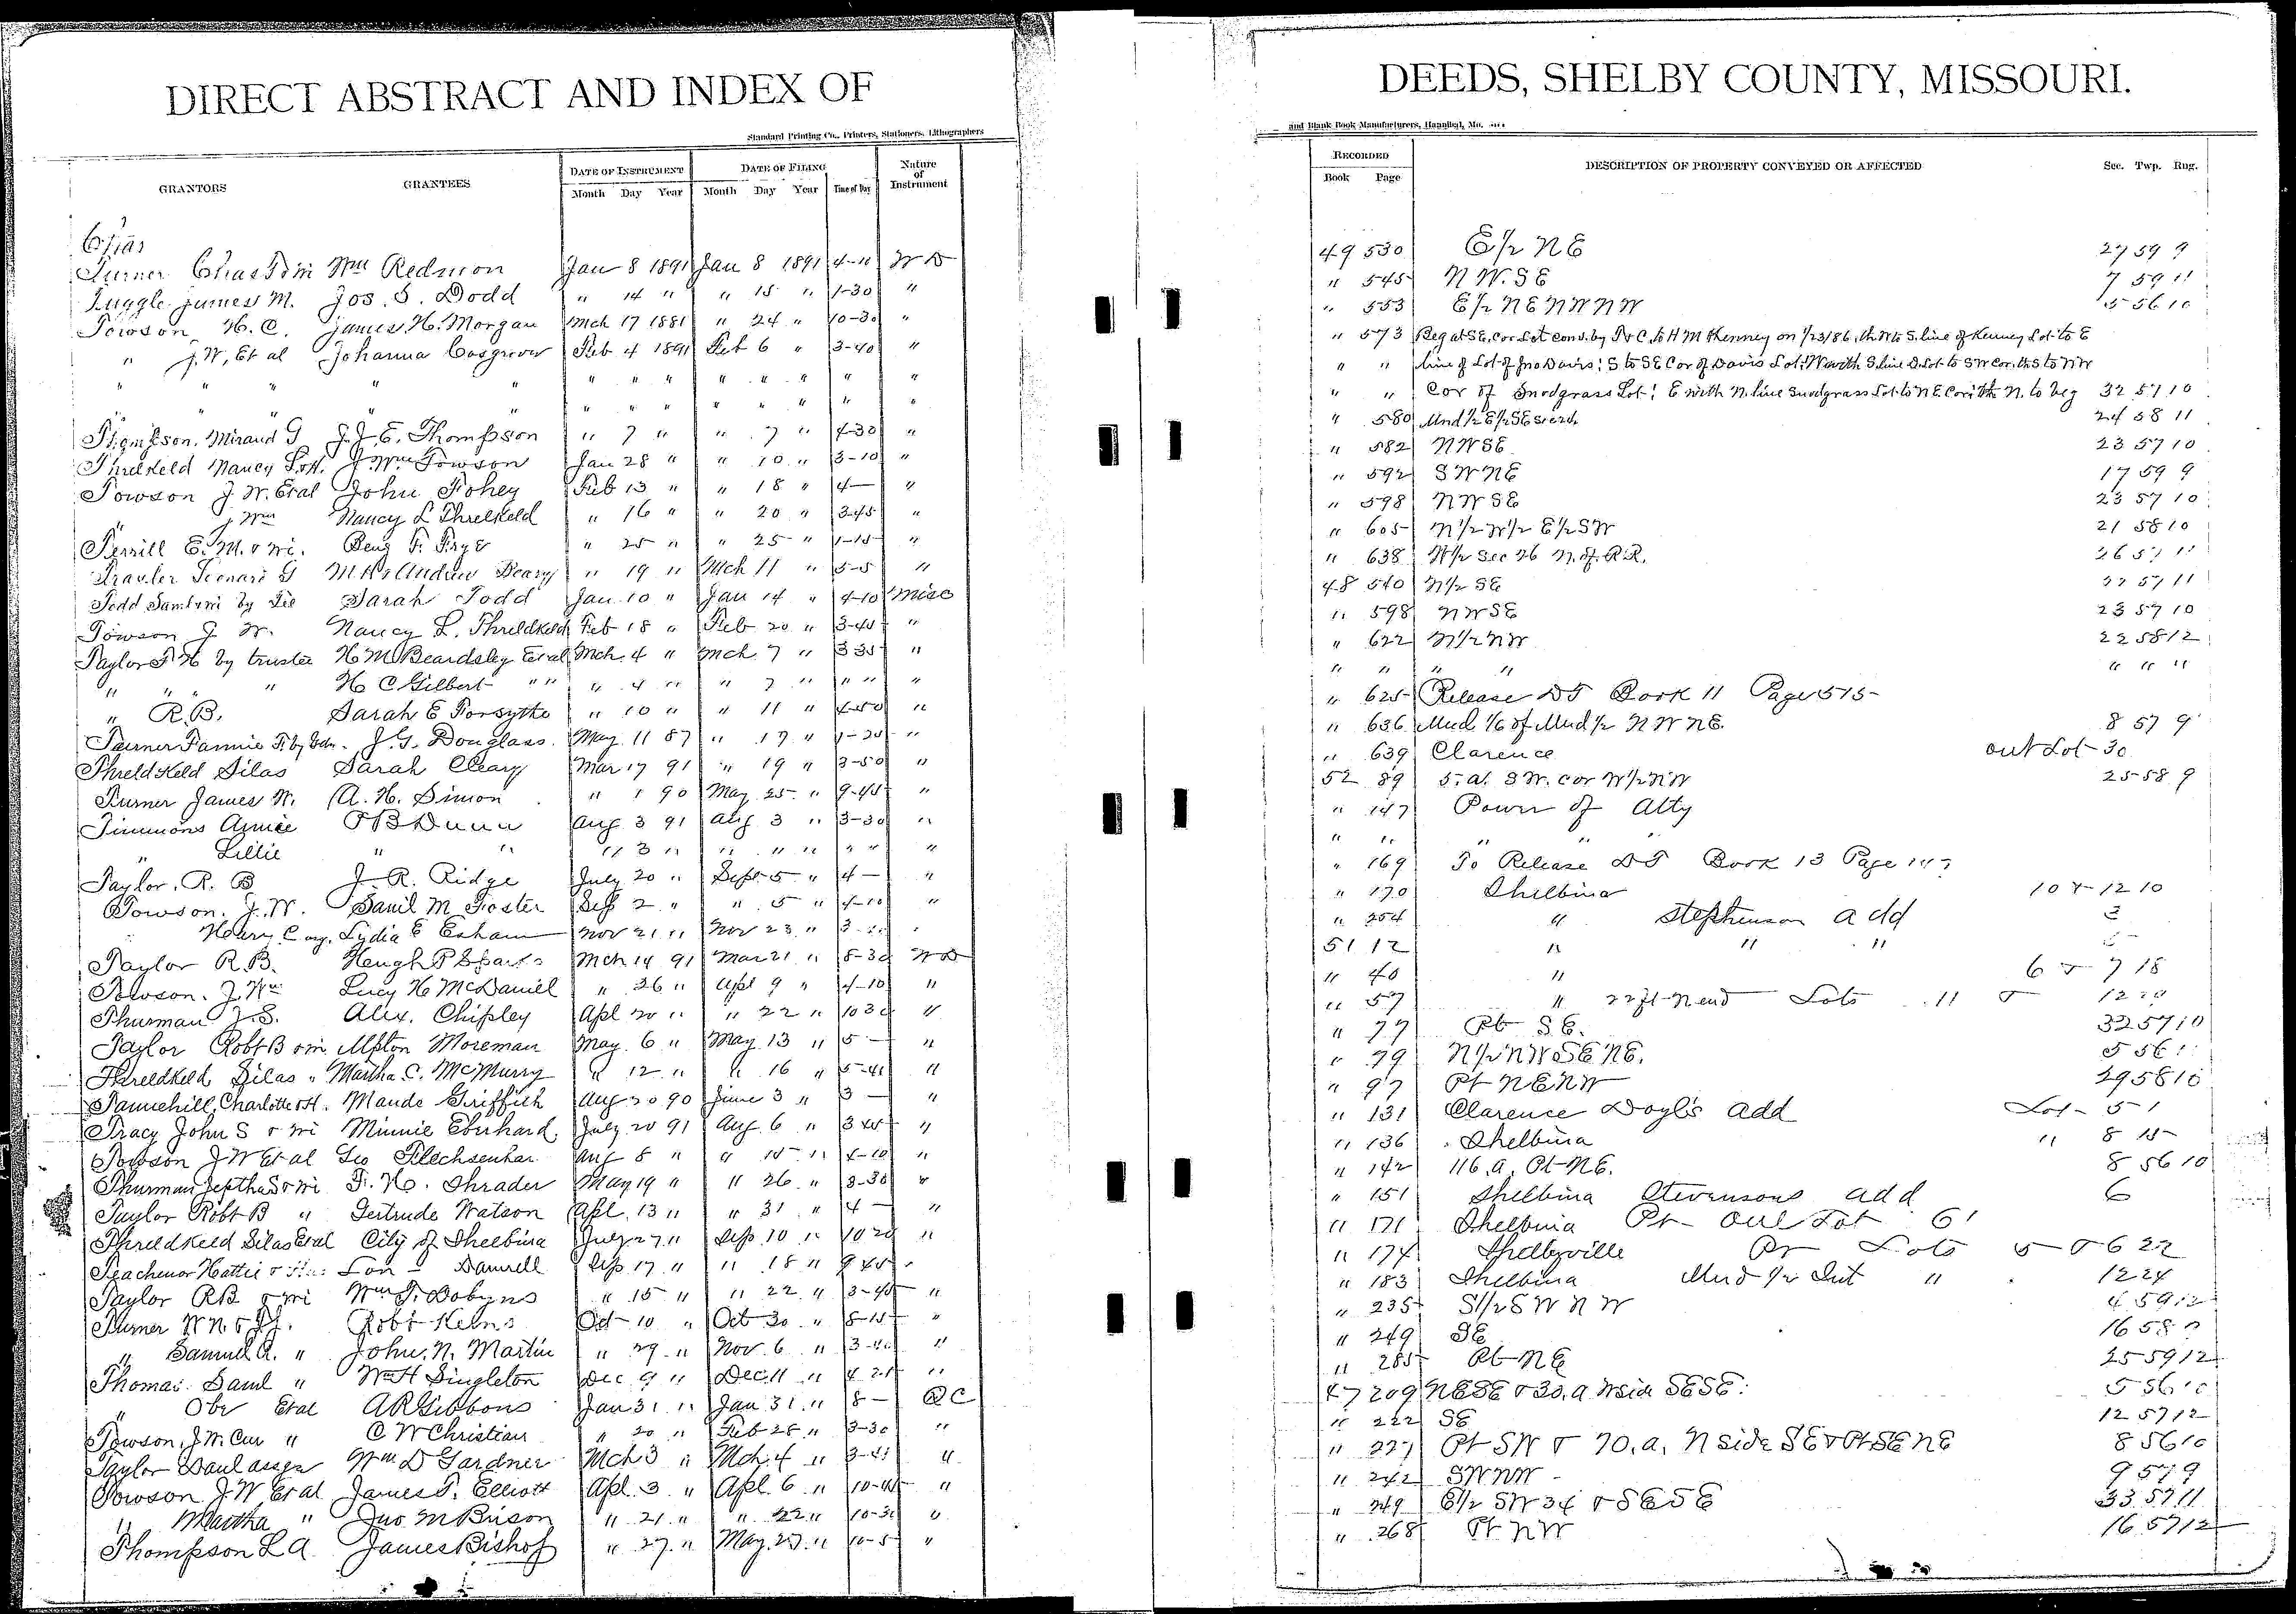 DIRECT ABSTRACT AND INDEX OF
Standard Printing Co., Printers, Stationers, Lithographers
GRANTORS GRANTEES DATE OF INSTRUMENT DATE OF FILING Nature of Instrument
Month Day Year Month Day Year Time of Day
Chas
Turner Chas Wm Redmon Jan 8 1891 Jan 8 1891 4-10 W D
Tuggle James M. Jos. S. Dodd " 14 " " 15 " 1-30 "
Towson H. C. James H. Morgan Mch 17 1881 " 24 " 10-30 "
" J. W, Et al Johanna Cosgrove Feb 4 1891 Feb 6 " 3-40 "
" " " " " " " " " " " "
" " " " " " " " " " " "
Thompson, Mirand G J. J. E. Thompson " 7 " " 7 " 4-30 "
Threlkeld Nancy J. Wm Towson Jan 28 " " 10 " 3-10 "
Towson J. W. Etal John Fohey Feb 13 " " 18 " 4— "
J. Wm Nancy L Threlkeld " 16 " " 20 " 3-45 "
Terrill E. M. & wi. Benj F. Frye " 25 " " 25 " 1-15 "
Andrew " 19 " Mch 11 " 5-5 "
Todd by Sarah Todd Jan. 10 " Jan 14 " 4-10 Misc
Towson J W. Nancy L. Threldkeld Feb 18 " Feb 20 " 3-45 "
Taylor T H by trustee H. M. Beardsley Etal Mch. 4 " Mch 7 " 3 35 "
" " " H C Gilbert " " " 4 " " 7 " " " "
" R.B. Sarah E Forsythe " 10 " " 11 " 4-50 "
Turner Fannie F. by J. G. Douglass. May 11 87 " 17 " "
Threldkeld Silas Sarah Cleary Mar 17 91 " 19 " 3-50 "
Turner James W. A. H. Simon " 1 90 May 25 " 9-45 "
Timmons Annie O B Dunn Aug 3 91 Aug 3 " 3-30 "
" Lillie " " " 3 " " " " " " "
Taylor, R. B J. R. Ridge July 20 " Sept 5 " 4 — "
Towson, J. W. Danil M Foster Sep 2 " " 5 " 4-10 "
Henry C Lydia E Esham Nov 21 " Nov 23 " 3
Taylor R.B. Hengh P Sparks Mch 14 91 Mar 21 " 8-30 W D
Towson. J. Wm Lucy H McDaniel " 26 " Apl 9 " 4-10 "
Thurman J. S. Alex. Chipley Apl 20 " " 22 " 10 30 "
Taylor Robt B & wi Upton Moreman May 6 " May 13 " 5 — "
Threldkeld Silas " Martha C. McMurry " 12 " " 16 " 5-41 "
Tannehill, Charlotte Maude Griffith Aug 20 90 June 3 " 3 — "
Tracy John S & wi Minnie Eberhard July 20 91 Aug. 6 " 3 45 "
Towson J W Et al Geo Flechsenhar Aug 8 " " 15 " 4-10 "
Thurman Jeptha S & wi F. H. Shrader May 19 " " 26 " 3-30 "
Taylor Robt B " Gertrude Watson Apl. 13 " " 31 " 4 — "
Threldkeld Silas Etal City of Shelbina July 27 " Sep 10 " 10 20 "
Teachenor Hattie & Lon Damrell Sep 17 " " 18 " 9 45 "
Taylor RB & wi Wm T. Dobyns " 15 " " 22 " 3-45 "
Turner W N. & Robt Kelns Oct 10 " Oct 30 " 8-15 "
" Samuel A. " John. N. Martin " 29 " Nov. 6 " 3-40 "
Thomas Saml " Wm H Singleton Dec 9 " Dec 11 " "
" Etal AR Gibbons Jan 31 " Jan 31 " 8 — Q C
Towson, J. W. Cur " C W Christian " 20 " Feb 28 " 3-30 "
Taylor Danl assgn Wm D Gardner Mch 3 " Mch. 4 " "
Towson J. W Etal James T. Elliott Apl. 3 " Apl. 6 " "
" Martha " Jno M Brison " 21 " " 22 " 10-30 "
Thompson L A James Bishop " 27 " May 27 " 10-5 "
DEEDS, SHELBY COUNTY, MISSOURI.
and Blank Book Manufacturers, Hannibal, Mo.
RECORDED DESCRIPTION OF PROPERTY CONVEYED OR AFFECTED Sec. Twp. Rng.
Book Page
49 530 E 1/2 NE 27 59 9
" 545 N W. SE 7 59 11
" 553 E 1/2 NE NW NW 5 56 10
" 573 Beg at SE. cor Lot conv. by to H M Kenney on 1/23/86. th W to S. line of Kenney Lot to E
" " line of Lot of Jno Davis; S to SE Cor of Davis Lot; W with S. line D. Lot to SW Cor. th S to NW
" " Cor of Snodgrass Lot; E with N. line Snodgrass Lot to N E. Cor; th N. to beg 32 57 10
" 580 Und 1/2 E 1/2 SE 24 58 11
" 582 NW SE 23 57 10
" 592 S W NE 17 59 9
" 598 NW SE 23 57 10
" 605 N 1/2 W 1/2 E 1/2 SW 21 58 10
" 638 W 1/2 Sec 26 N. of R.R. 26 57 11
48 540 N 1/2 SE 22 57 11
" 598 NW SE 23 57 10
" 622 N 1/2 NW 22 58 12
" " " " " " "
" 625 Release DT Book 11 Page 515
" 636 Und. 1/6 of Und 1/2 N W NE. 8 57 9
" 639 Clarence out Lot 30
52 89 5. a. S W. cor W 1/2 NW 25 58 9
" 147 Power of Atty
" " " "
" 169 To Release DT Book 13 Page 147
" 170 Shelbina 10 & 12 10
" 254 " Stephenson add 3
51 12 " " "
" 40 " 6 & 7 18
" 57 " 22 ft N end Lots 11 &
" 77 Pt SE. 32 57 10
" 79 N 1/2 NW SE NE.
" 97 Pt NE NW 29 58 10
" 131 Clarence Doyl's add Lot 5 1
" 136 Shelbina " 8 15
" 142 116. a. Pt NE. 8 56 10
" 151 Shelbina Stevensons add 6
" 171 Shelbina Pt out Lot 61
" 174 Shelbyville Pt Lots 5 & 6 22
" 183 Shelbina Und 1/2 Int " 12 24
" 235 S 1/2 S W N W 4 59 12
" 249 SE 16 58
" 285 Pt NE 25 59 12
47 209 NE SE & 30. a W side SE SE. 5 56 10
" 222 SE 12 57 12
" 227 Pt SW & 70. a, N side SE & Pt SE NE 8 56 10
" 242 SW NW 9 57 9
" 249 E 1/2 SW 34 & SE SE 33 57 11
" 268 Pt NW 16 57 12